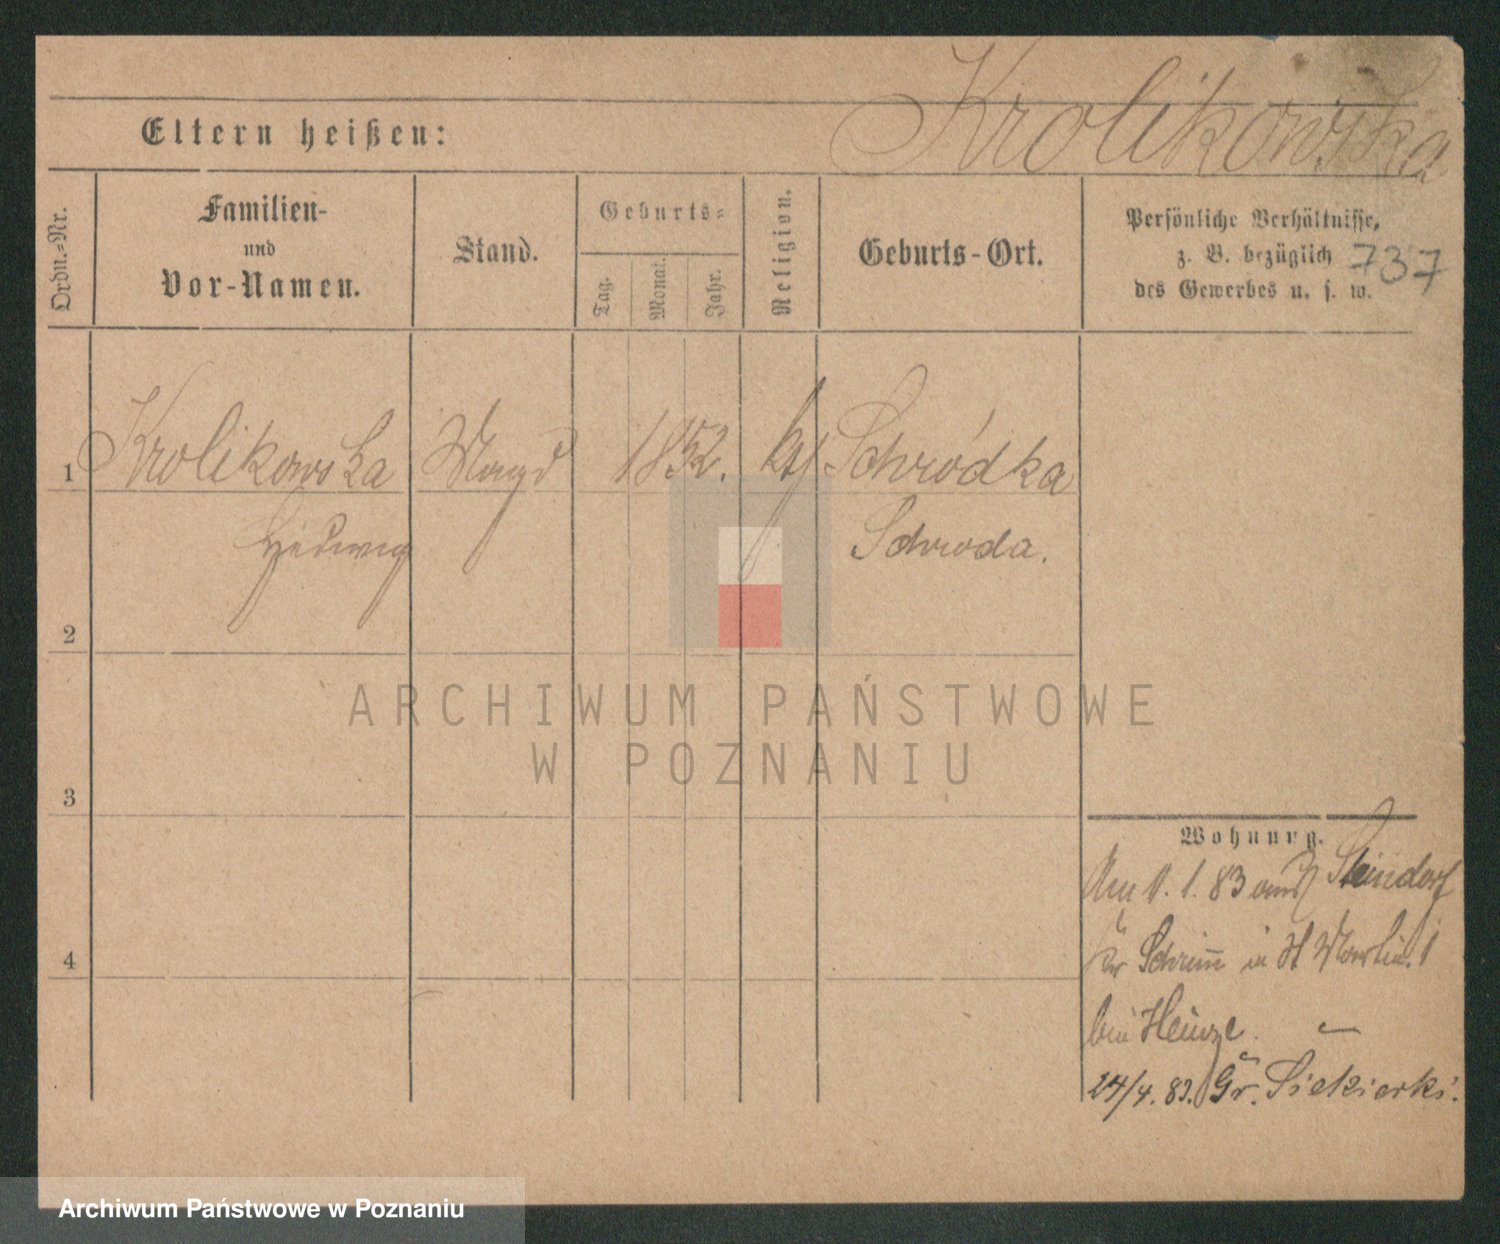 Krolikowska
Eltern heißen:
Ordn.-Nr.
Familien-
und
Vor-Namen.
Stand.
Geburts-
Tag.
Monat.
Jahr.
Religion.
Geburts-Ort.
Persönliche Verhältnisse,
z. B. bezüglich
des Gewerbes u. s. w.
737
1 Krolikowska Magd 1852. kth Schródka
Hedwig Schroda.
2
3
4
Wohnung.
Am 1. 1. 83 aus Steindorf
Kr Schrimm in St Martin. 1
bei Heinze.
24/4. 83. Gr. Siekierki.
ARCHIWUM PAŃSTWOWE
W POZNANIU
Archiwum Państwowe w Poznaniu